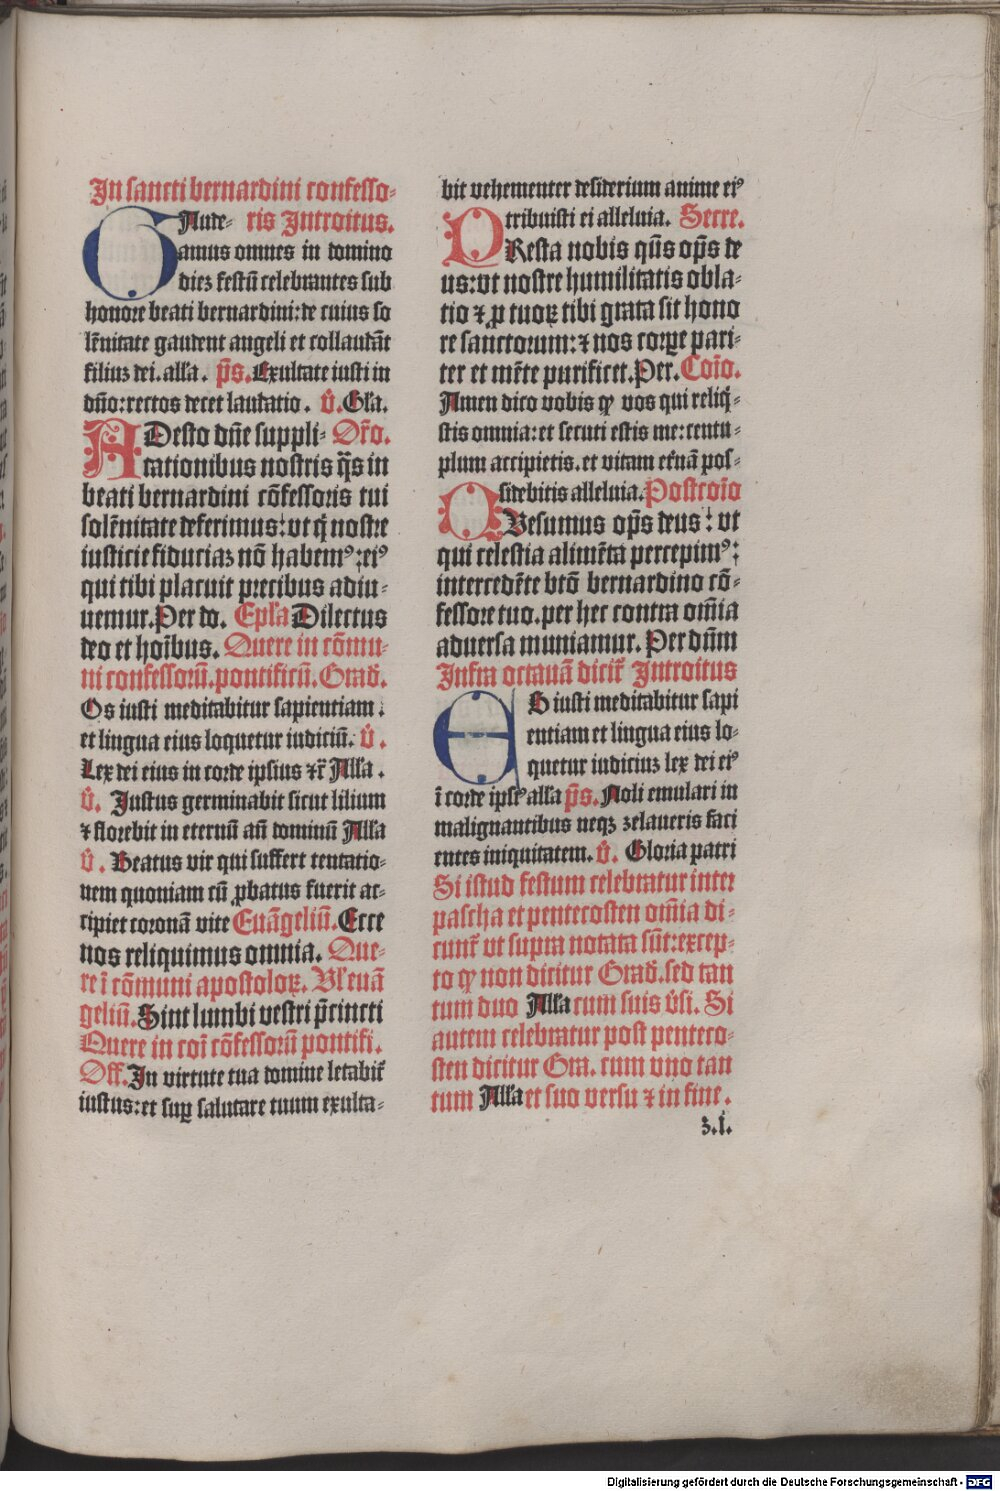 In sancti bernardini confesso-
GAude- ris Introitus.
amus omnes in domino
dieʒ festū celebrantes sub
honore beati bernardini: de cuius so
lēnitate gaudent angeli et collaudāt
filiuʒ dei. alľa. p̄s. Exultate iusti in
dn̄o: rectos decet laudatio. v̊. Gľa.
ADesto dn̄e suppli- Or̄o.
cationibus nostris q̄s in
beati bernardini cōfessoris tui
solēnitate deferimus: vt q̄ nostre
iusticie fiduciaʒ nō habemꝰ: eiꝰ
qui tibi placuit precibus adiu-
uemur. Per do. Epľa Dilectus
deo et hoībus. Quere in cōmu-
ni confessorū. pontificū. Grad̄.
Os iusti meditabitur sapientiam:
et lingua eius loquetur iudiciū. v̊.
Lex dei eius in corde ipsius ⁊c̄ Alľa.
v̊. Iustus germinabit sicut lilium
⁊ florebit in eternū an̄ dominū Alľa
v̊. Beatus vir qui suffert tentatio-
nem quoniam cū ꝓbatus fuerit ac-
cipiet coronā vite Euāgeliū. Ecce
nos reliquimus omnia. Que-
re ī cōmuni apostoloꝝ. Vľ euā
geliū. Sint lumbi vestri p̄cincti
Quere in coī cōfessorū pontifi.
Off. In virtute tua domine letabit̄
iustus: et suꝑ salutare tuum exulta-
bit vehementer desiderium anime eiꝰ
tribuisti ei alleluia. Secre.
PResta nobis qūs op̄s de
us: vt nostre humilitatis obla-
tio ⁊ ꝓ tuoꝝ tibi grata sit hono
re sanctorum: ⁊ nos corꝑe pari-
ter et mēte purificet. Per. Coīo.
Amen dico vobis ꝙ vos qui reliq̄-
stis omnia: et secuti estis me: centu-
plum accipietis. et vitam et̄nā pos-
sidebitis alleluia. Postcoīo
QVesumus op̄s deus: vt
qui celestia alimēta percepimꝰ:
intercedēte btō bernardino cō-
fessore tuo. per hec contra om̄ia
aduersa muniamur. Per dn̄m
Infra octauā dicit̄ Introitus
OS iusti meditabitur sapi
entiam et lingua eius lo-
quetur iudiciuʒ lex dei eiꝰ
ī corde ipsiꝰ alľa p̄s. Noli emulari in
malignantibus neqʒ zelaueris faci
entes iniquitatem. v̊. Gloria patri
Si istud festum celebratur inter
pascha et pentecosten om̄ia di-
cunt̄ vt supra notata sūt: excep-
to ꝙ non dicitur Grad̄. sed tan
tum duo Alľa cum suis v̊si. Si
autem celebratur post penteco-
sten dicitur Gra. cum vno tan
tum Alľa et suo versu ⁊ in fine.
ʒ.i.
Digitalisierung gefördert durch die Deutsche Forschungsgemeinschaft - DFG